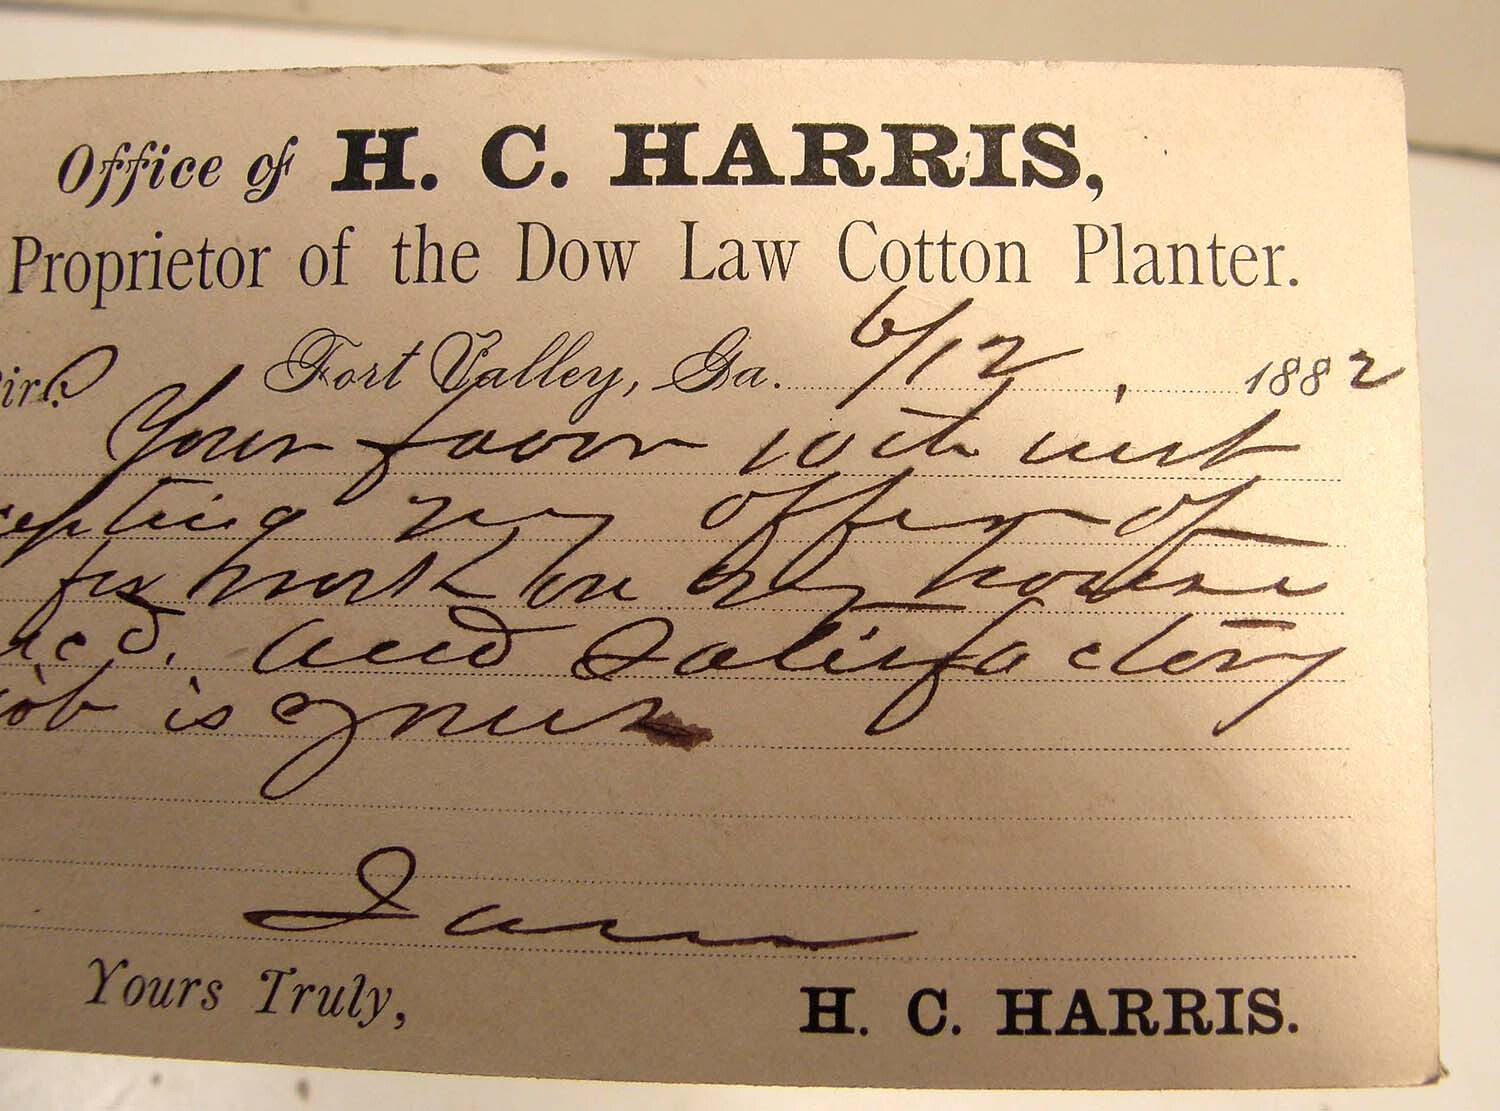 Office of H. C. HARRIS,
Proprietor of the Dow Law Cotton Planter.
Fort Valley, Ga. 6/12, 1882
Your favor 10th inst
my offer of
for work on my house
and Satisfactory
job is yours
I am
Yours Truly, H. C. HARRIS.